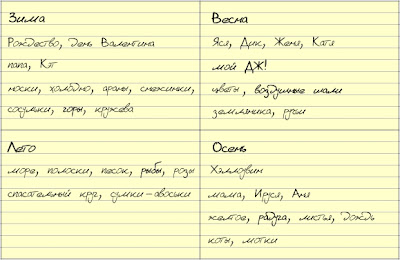 Зима
Рождество, День Валентина
папа, Кэт
носки, холодно, араны, снежинки,
сосульки, горы, кружева
Весна
Яся, Дик, Женя, Катя
мой ДЖ!
цветы, воздушные шали
земляника, ручьи
Лето
море, полоски, песок, рыбы, розы
спасательный круг, сумки-авоськи
Осень
Хэллоуин
мама, Ируся, Аня
желтое, радуга, листья, дождь
коты, мотки